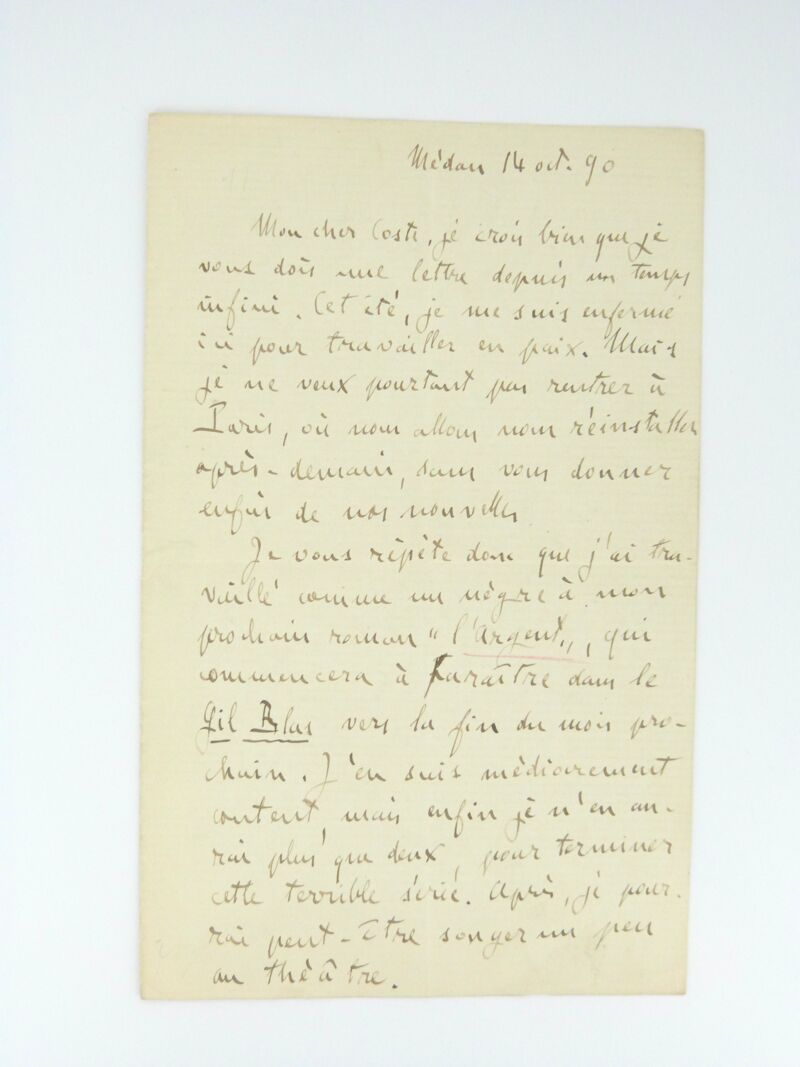 Médan 14 oct. 90
Mon cher Coste, je crois bien que je
vous dois une lettre depuis un temps
infini. Cet été, je me suis enfermé
ici pour travailler en paix. Mais
je ne veux pourtant pas rentrer à
Paris, où nous allons nous réinstaller
après-demain, sans vous donner
enfin de nos nouvelles
Je vous répète donc que j'ai tra-
vaillé comme un nègre à mon
prochain roman "l'Argent", qui
commencera à paraître dans le
Gil Blas vers la fin du mois pro-
chain. J'en suis médiocrement
content, mais enfin je n'en au-
rai plus que deux, pour terminer
cette terrible série. Après, je pour-
rai peut-être songer un peu
au théâtre.